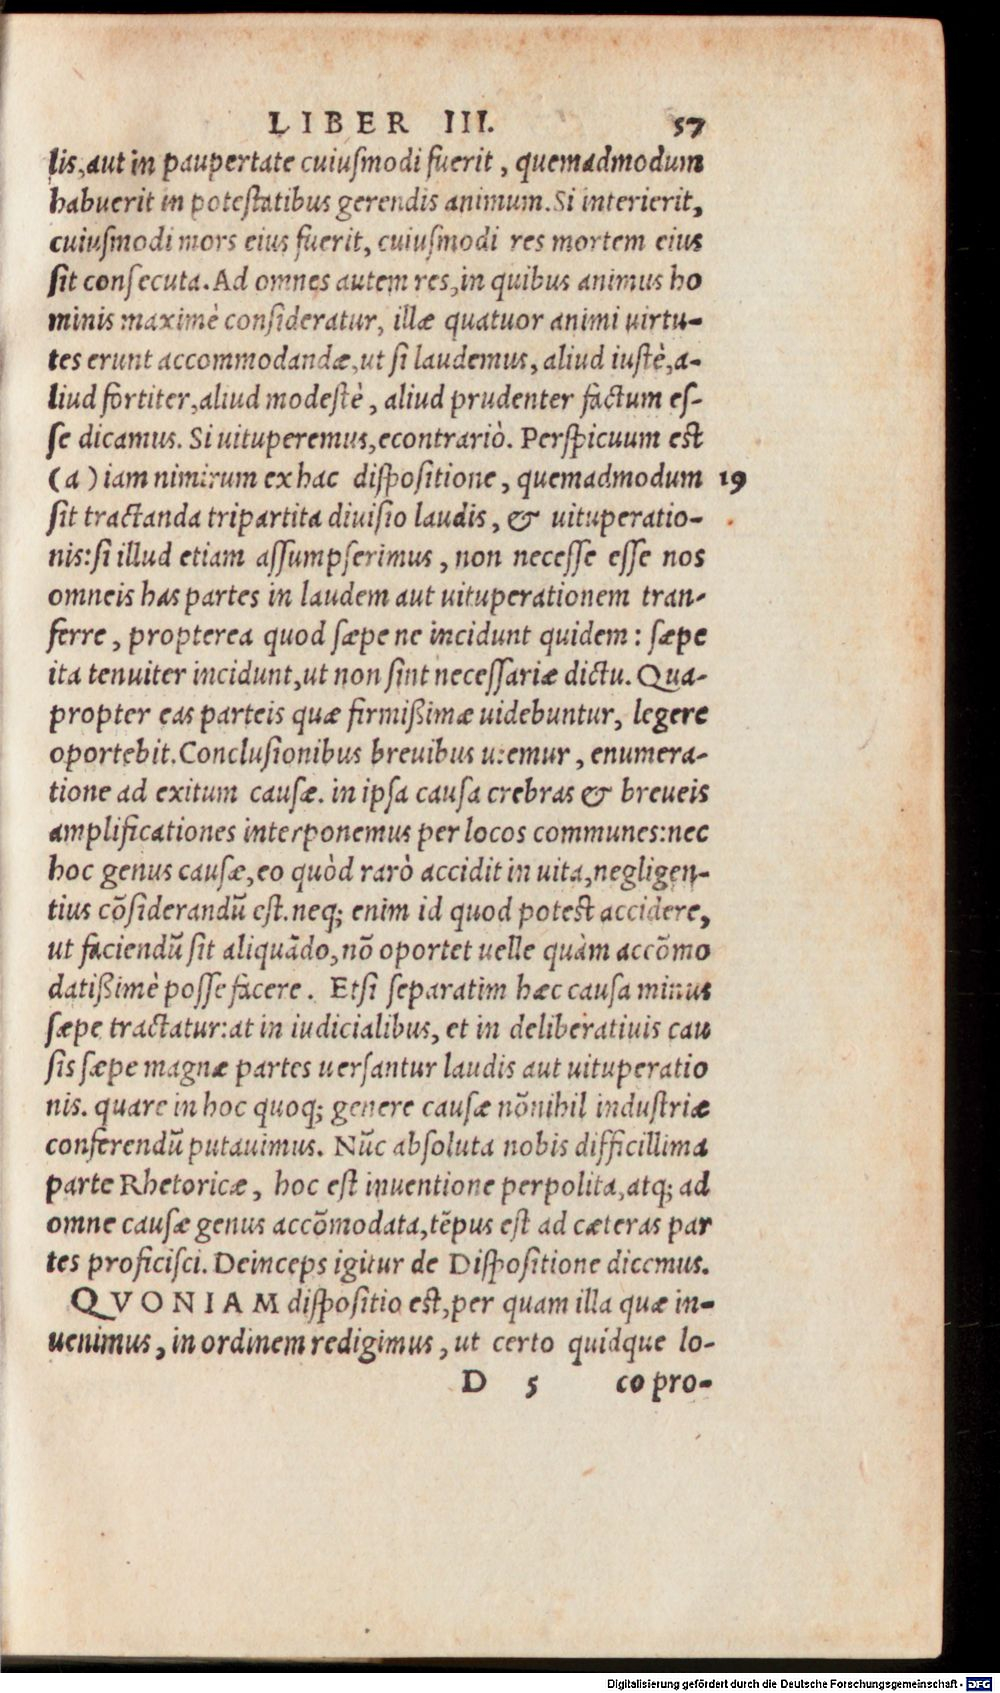 LIBER III. 57
lis, aut in paupertate cuiuſmodi fuerit, quemadmodum
habuerit in poteſtatibus gerendis animum. Si interierit,
cuiuſmodi mors eius fuerit, cuiuſmodi res mortem eius
ſit conſecuta. Ad omnes autem res, in quibus animus ho
minis maximè conſideratur, illæ quatuor animi uirtu-
tes erunt accommodandæ, ut ſi laudemus, aliud iuſtè, a-
liud fortiter, aliud modeſtè, aliud prudenter factum eſ-
ſe dicamus. Si uituperemus, econtrariò. Perſpicuum eſt
(a) iam nimirum ex hac diſpoſitione, quemadmodum 19
ſit tractanda tripartita diuiſio laudis, & uituperatio-
nis: ſi illud etiam aſſumpſerimus, non neceſſe eſſe nos
omneis has partes in laudem aut uituperationem tran-
ferre, propterea quod ſæpe ne incidunt quidem: ſæpe
ita tenuiter incidunt, ut non ſint neceſſariæ dictu. Qua-
propter eas parteis quæ firmißimæ uidebuntur, legere
oportebit. Concluſionibus breuibus utemur, enumera-
tione ad exitum cauſæ. in ipſa cauſa crebras & breueis
amplificationes interponemus per locos communes: nec
hoc genus cauſæ, eo quòd rarò accidit in uita, negligen-
tius cõſiderandũ eſt. neq; enim id quod poteſt accidere,
ut faciendũ ſit aliquãdo, nõ oportet uelle quàm accõmo
datißimè poſſe facere. Etſi ſeparatim hæc cauſa minus
ſæpe tractatur: at in iudicialibus, et in deliberatiuis cau
ſis ſæpe magnæ partes uerſantur laudis aut uituperatio
nis. quare in hoc quoq; genere cauſæ nõnihil induſtriæ
conferendũ putauimus. Nũc abſoluta nobis difficillima
parte Rhetoricæ, hoc eſt inuentione perpolita, atq; ad
omne cauſæ genus accõmodata, tẽpus eſt ad cæteras par
tes proficiſci. Deinceps igitur de Diſpoſitione dicemus.
QVONIAM diſpoſitio eſt, per quam illa quæ in-
uenimus, in ordinem redigimus, ut certo quidque lo-
D 5 co pro-
Digitalisierung gefördert durch die Deutsche Forschungsgemeinschaft - DFG